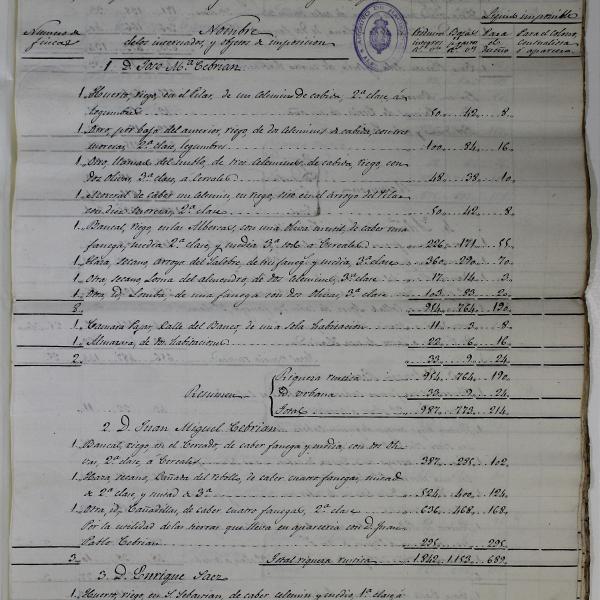 Liquido imponible
Numero de fincas
Nombre de los interesados, y objetos de imposicion
Producto integro
Bajas
Para el dueño
Para el colono, comunalista ó aparcero
1. D. Jose Mª Cebrian
1. Huerto, riego, en el Pilar, de un celemin de cabida, 2ª clase á
legumbres 50 42 8
1. Otro, por bajo del anterior, riego, de dos celemines de cabida, con tres
moreras, 2ª clase, legumbres 100 84 16
1. Otro, llamado del de tres celemines de cabida, riego, con
dos Olivos, 3ª clase, a Cereales 48 38 10
1. Moreral de caber un celemin, en riego, sito en el arroyo del Pilar
con diez moreras, 2ª clase 50 42 8
1. Bancal, riego, en las Albercas, con una oliva de caber una
fanega, media 2ª clase, y media 3ª solo a Cereales 226 171 55
1. Haza, secano, arroyo del de tres faneg.s y media, 3ª clase 360 290 70
1. Otra, secano, Loma del almendro, de dos celemines, 3ª clase 17 14 3
1. Otra, id. Lomba, de una fanega con dos Olivos, 3ª clase 103 83 20
8. 954 764 190
1. Camara Pajar, Calle del Banco, de una sola habitacion 11 3 8
1. Almazara, de dos habitaciones 22 6 16
2. 33 9 24
Resumen
Riqueza rustica 954 764 190
Id. urbana 33 9 24
Total 987 773 214
2. D. Juan Miguel Cebrian
1. Bancal, riego, en el Cercado, de caber fanega y media, con dos Oli-
vos, 2ª clase, a Cereales 387 285 102
1. Haza, secano, Cañada del rebollo, de caber cuatro fanegas, mitad
de 2ª clase, y mitad de 3ª 524 400 124
1. Otra, id. Cañadillas, de caber cuatro fanegas, 2ª clase 636 468 168
Por la utilidad de las tierras que lleva en aparceria con D. Juan
Pablo Cebrian 295 295
3. Total riqueza rustica 1.842 1.153 689
3. D. Enrique Saez
1. Huerto, riego, en S. Sebastian, de caber celemin y medio, 1ª clase á